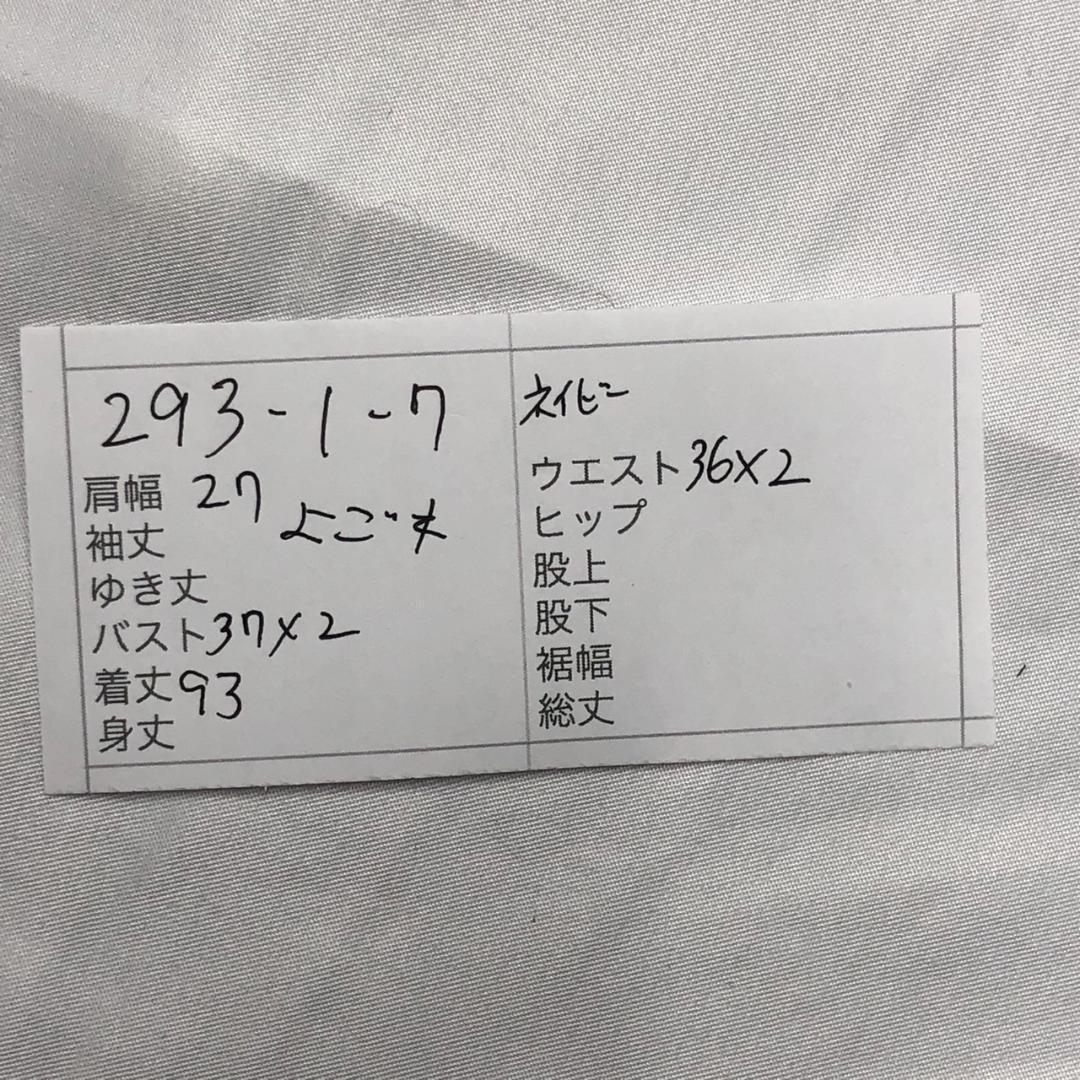 293-1-7
肩幅 27
袖丈
ゆき丈
バスト37×2
着丈93
身丈
ネイビー
ウエスト36×2
ヒップ
股上
股下
裾幅
総丈